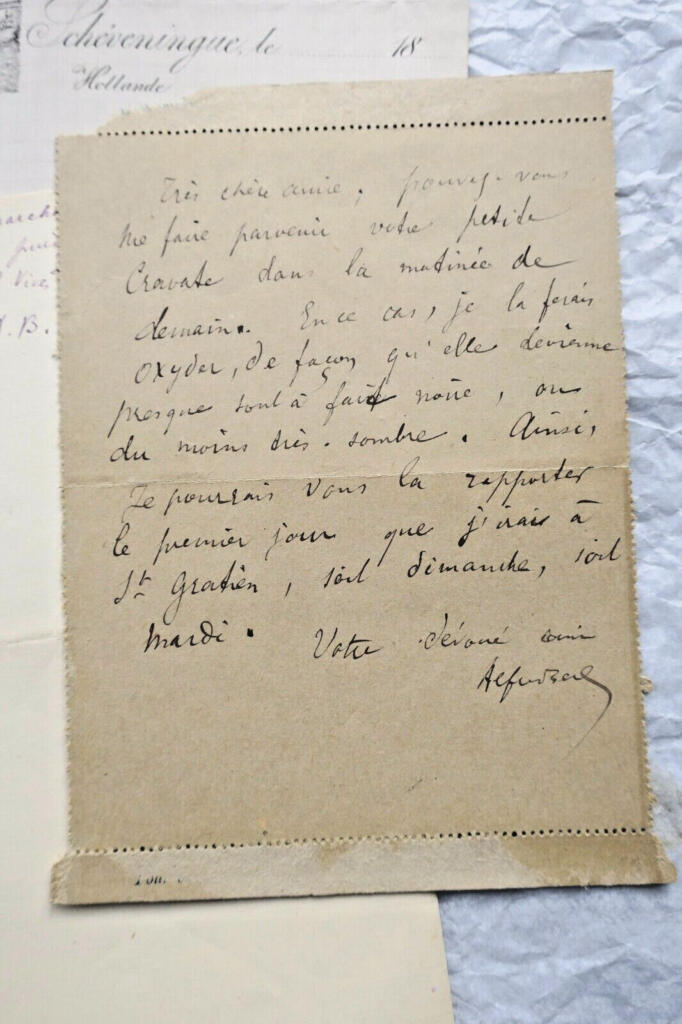 Schéveningue, le 18
Hollande
Très chère amie, pouvez-vous
me faire parvenir votre petite
Cravate dans la matinée de
demain. En ce cas, je la ferais
oxyder, de façon qu'elle devienne
presque tout à fait noire, ou
du moins très-sombre. Ainsi,
je pourrais vous la rapporter
le premier jour que j'irais à
St Gratien, soit dimanche, soit
mardi. Votre dévoué ami